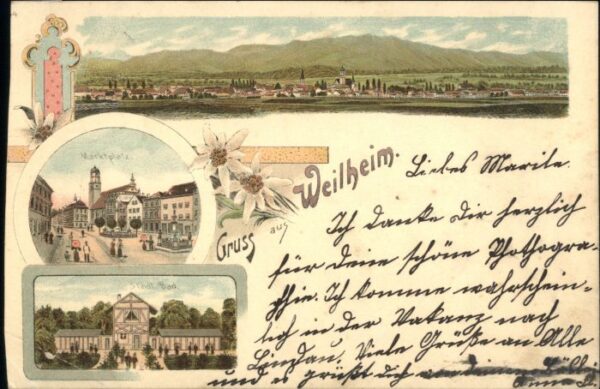 Marktplatz.
Städt. Bad.
Gruss aus Weilheim.
Liebes Marile.
Ich danke Dir herzlich
für deine schöne Photogra-
phie. Ich komme wahrschein-
lich in der Vakanz nach
Lindau. Viele Grüße an Alle
und es grüßt dich